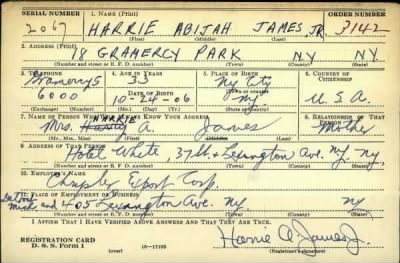 SERIAL NUMBER 1. NAME (Print) ORDER NUMBER
2067 HARRIE ABIJAH JAMES, JR 3142
(First) (Middle) (Last)
2. ADDRESS (Print)
18 GRAMERCY PARK NY NY
(Number and street or R. F. D. number) (Town) (County) (State)
3. TELEPHONE 4. AGE IN YEARS 5. PLACE OF BIRTH 6. COUNTRY OF CITIZENSHIP
33 Ny City
6000 DATE OF BIRTH
10-24-06 Ny. U.S.A.
(Exchange) (Number) (Mo.) (Day) (Yr.) (State or country)
7. NAME OF PERSON WHO WILL ALWAYS KNOW YOUR ADDRESS 8. RELATIONSHIP OF THAT PERSON
HARRIE
Mrs. Harry A. James Mother
(Mr., Mrs., Miss) (First) (Middle) (Last)
9. ADDRESS OF THAT PERSON
Hotel White, 37 St & Lexington Ave. Ny. Ny.
(Number and street or R. F. D. number) (Town) (County) (State)
10. EMPLOYER'S NAME
Chrysler Export Corp.
11. PLACE OF EMPLOYMENT OR BUSINESS
Detroit
Mich and 405 Lexington Ave. Ny. Ny
(Number and street or R. F. D. number) (Town) (County) (State)
I AFFIRM THAT I HAVE VERIFIED ABOVE ANSWERS AND THAT THEY ARE TRUE.
REGISTRATION CARD
D. S. S. Form 1 (over) 16—17105
Harrie A. James Jr.
(Registrant's signature)